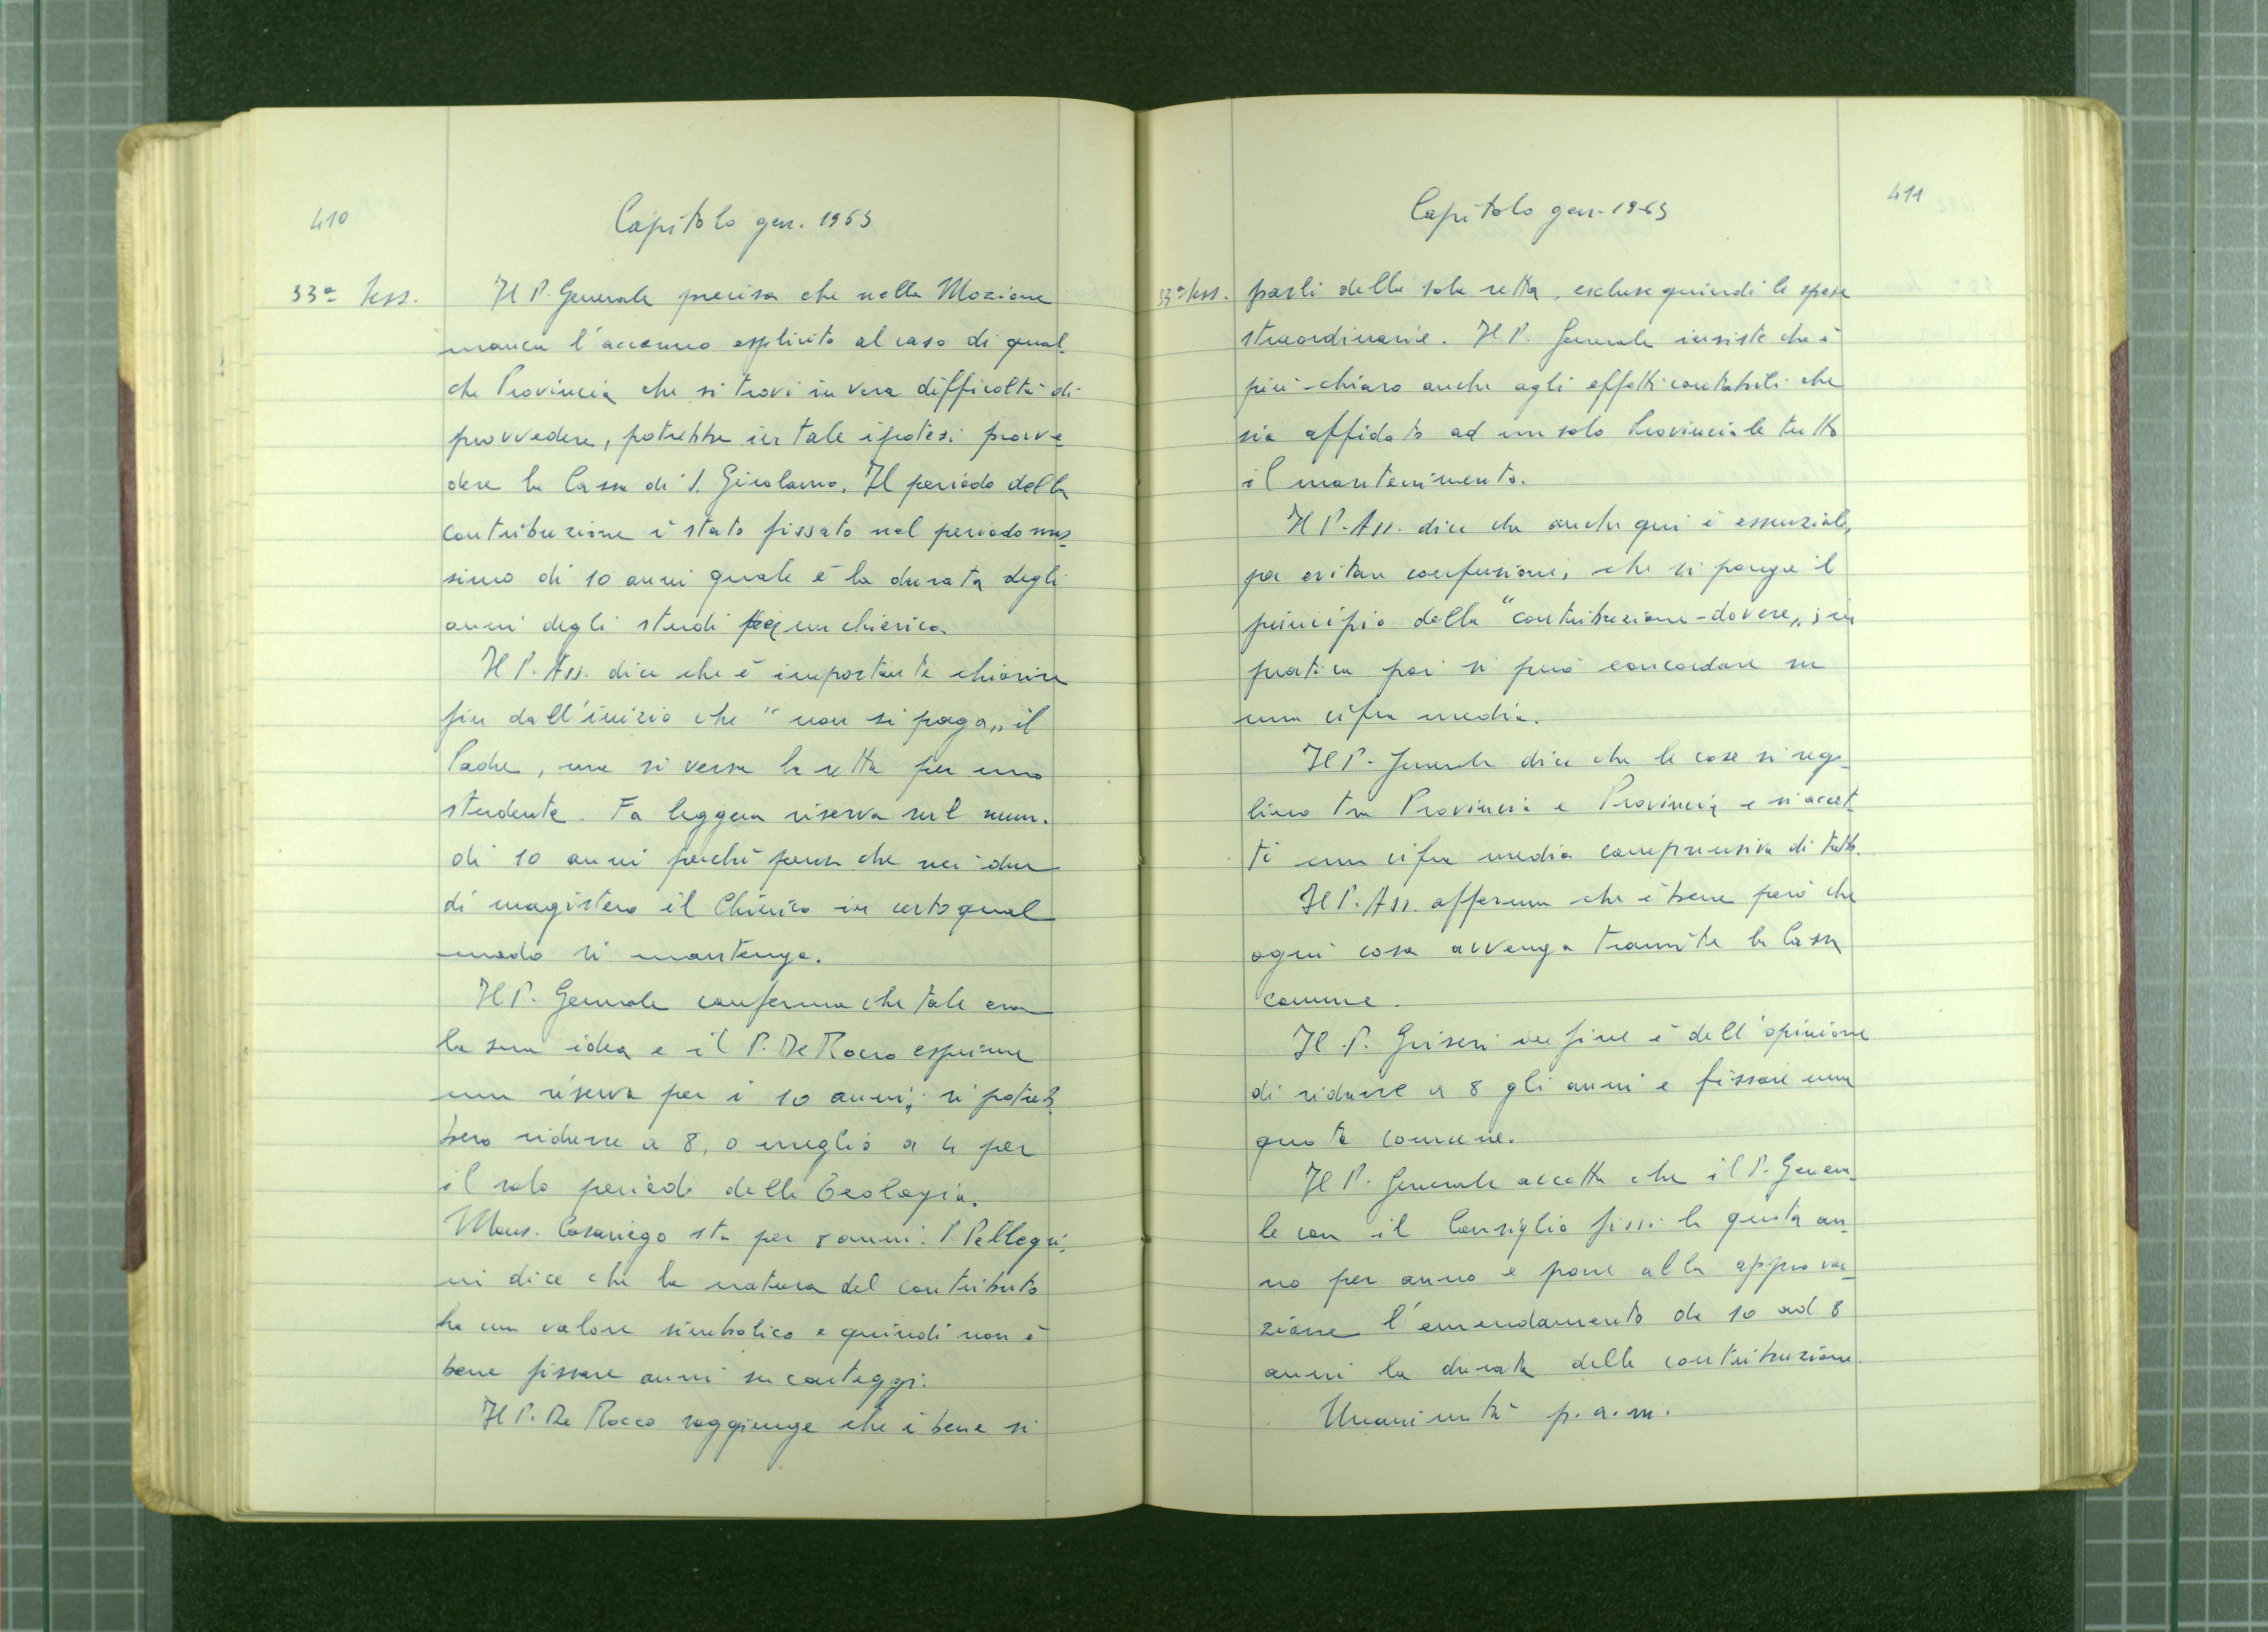 410
Capitolo gen. 1963
33ª Sess.
Il P. Generale precisa che nella Mozione
manca l'accenno esplicito al caso di qual-
che Provincia che si trovi in vera difficoltà di
provvedere, potrebbe in tale ipotesi provve
dere la Cassa di S. Girolamo. Il periodo della
contribuzione è stato fissato nel periodo mas-
simo di 10 anni quale è la durata degli
anni degli studi per un chierico.
Il P. Ass. dice che è importante chiarire
fin dall'inizio che "non si paga„ il
Padre, ma si versa la retta per uno
studente. Fa leggera riserva sul num.
di 10 anni perché pensa che nei due
di magistero il Chierico in certo qual
modo si mantenga.
Il P. Generale conferma che tale era
la sua idea e il P. De Rocco esprime
una riserva per i 10 anni; si potreb-
bero ridurre a 8, o meglio a 4 per
il solo periodo della Teologia.
Mons. Casariego sta per 8 anni. P. Pellegri-
ni dice che la natura del contributo
ha un valore simbolico e quindi non è
bene fissare anni su conteggi.
Il P. De Rocco soggiunge che è bene si
411
Capitolo gen. 1963
33ª Sess.
parli della sola retta, escluse quindi le spese
straordinarie. Il P. Generale insiste che è
più chiaro anche agli effetti contabili che
sia affidato ad un solo Provinciale tutto
il mantenimento.
Il P. Ass. dice che anche qui è essenziale,
per evitare confusioni, che si ponga il
principio della "contribuzione-dovere„; in
pratica poi si può concordare su
una cifra media.
Il P. Generale dice che le cose si rego-
lino tra Provincia e Provincia e si accet
ti una cifra media comprensiva di tutto.
Il P. Ass. afferma che è bene però che
ogni cosa avvenga tramite la Cassa
comune.
Il P. Griseri infine è dell'opinione
di ridurre a 8 gli anni e fissare una
quota comune.
Il P. Generale accetta che il P. Genera-
le con il Consiglio fissi la quota an-
no per anno e pone alla approva-
zione l'emendamento da 10 ad 8
anni la durata della contribuzione.
Unanimità p.a.m.